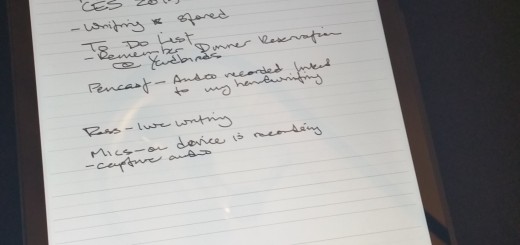 CES
- Writing * stored
To Do List
- Remember Dinner Reservation
@ Yardbirds
Pencast - Audio recorded linked
to my handwriting
- live writing
Mics - on device is recording
- capture audio